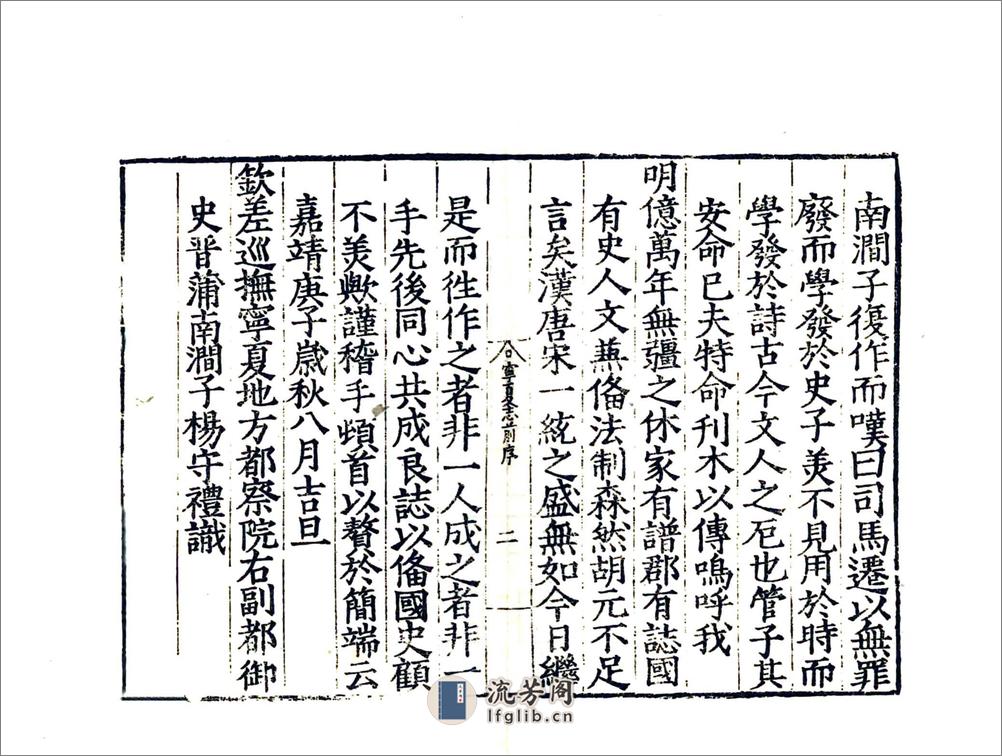 南澗子復作而嘆曰司馬遷以無罪
廢而學發於史子羙不見用於時而
學發於詩古今文人之厄也管子其
安命已夫特命刊木以傳嗚呼我
明億萬年無疆之休家有譜郡有誌國
有史人文兼俻法制森然胡元不足
言矣漢唐宋一統之盛無如今日繼
寧夏志前序
二
是而徃作之者非一人成之者非一
手先後同心共成良誌以俻國史顧
不羙歟謹稽手頓首以贅於簡端云
嘉靖庚子歲秋八月吉旦
欽差巡撫寧夏地方都察院右副都御
史晉蒲南澗子楊守禮識
流芳阁
lfglib.cn